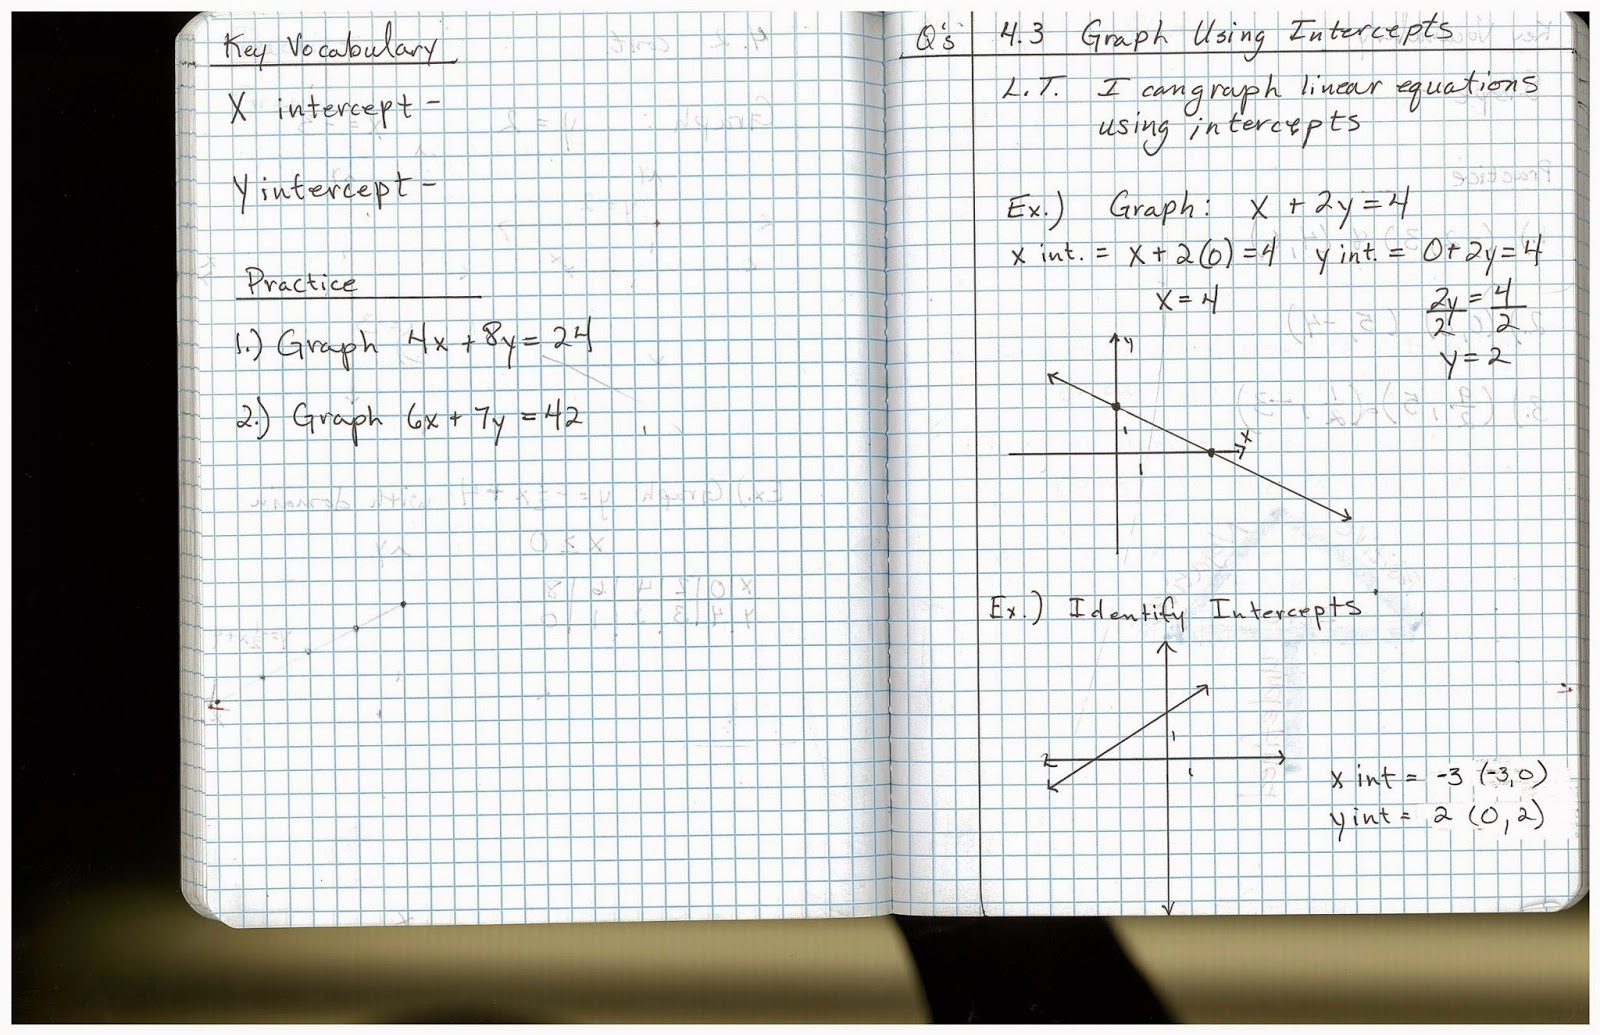 Key Vocabulary
X intercept -
Y intercept -
Practice
1.) Graph 4x + 8y = 24
2.) Graph 6x + 7y = 42
Q's 4.3 Graph Using Intercepts
L.T. I can graph linear equations
using intercepts
Ex.) Graph: x + 2y = 4
x int. = x + 2(0) = 4 y int. = 0 + 2y = 4
x = 4
2y/2 = 4/2
y = 2
y
x
1
1
Ex.) Identify Intercepts
1
1
x int = -3 (-3,0)
y int = 2 (0,2)